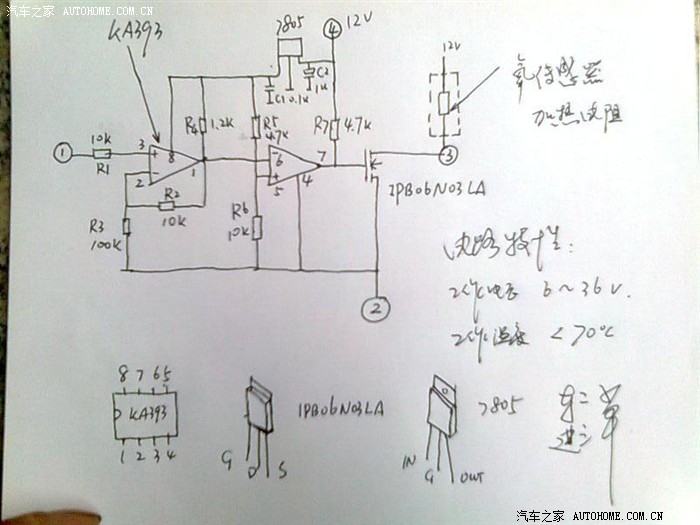 汽车之家 AUTOHOME.COM.CN
KA393
7805
4
12V
12V
C1 0.1K
C2
1K
氧传感器
加热电阻
R4 1.2K
R5
4.7K
R7 4.7K
1
10K
R1
3
+
8
2
-
1
-
6
+
5
7
4
3
IPB06N03LA
R2
10K
R3
100K
R6
10K
2
电路特性:
工作电压 6~36V.
工作温度 <70℃
8 7 6 5
KA393
1 2 3 4
IPB06N03LA
G D S
7805
IN G OUT
汽车之家 AUTOHOME.COM.CN